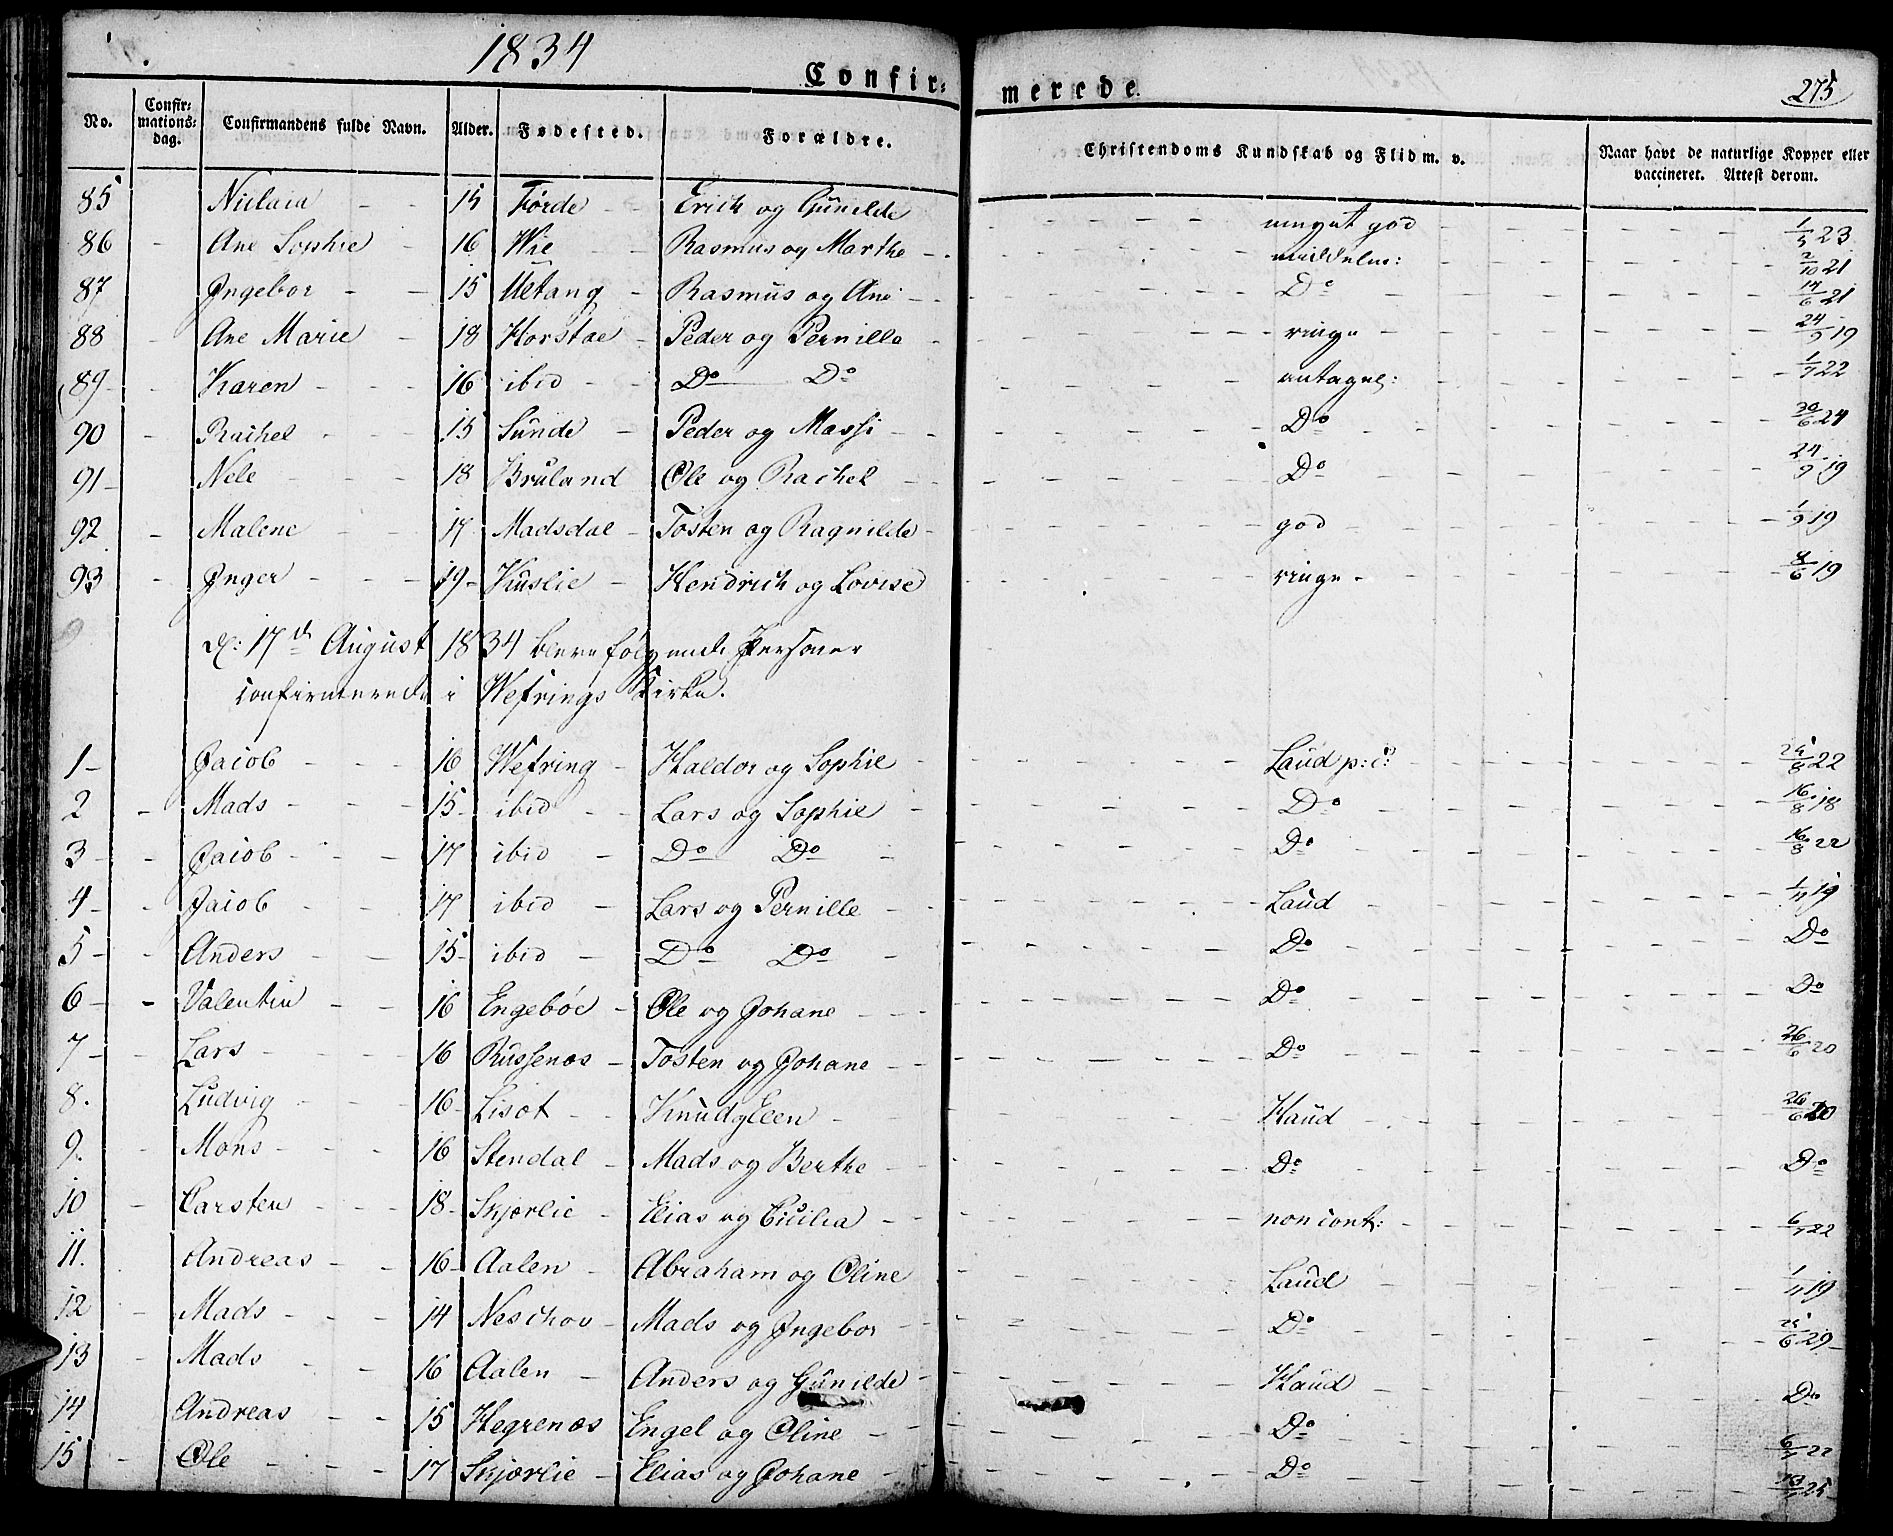 1834
Confirmerede.
275
No. Confirmationsdag. Confirmandens fulde Navn. Alder. Fødested. Forældre. Christendoms Kundskab og Flid m. v. Naar havt de naturlige Kopper eller vaccineret. Attest derom.
85 15 Förde Erich og Gunilde meget god 1/5 23
86 Ane Sophie 16 Wie Rasmus og Marthe middelm: 2/10 21
87 Ingebor 15 Rasmus og Ane Do 14/6 21
88 Ane Marie 18 Horstae Peder og Pernille ringe 24/9 19
89 Karen 16 ibid Do Do antagel: 1/7 22
90 Rachel 15 Sunde Peder og Massi Do 30/6 24
91 Nele 18 Bruland Ole og Rachel Do 24/9 19
92 Malene 17 Madsdal Tosten og Ragnilde god 1/9 19
93 Inger 19 Kuslie Hendrich og Lovise ringe 8/6 19
d: 17de August 1834 bleve følgende Personer
confirmerede i Wefrings Kirke.
1 Jacob 16 Wefring Haldor og Sophie Laud p: c: 25/8 22
2 Mads 15 ibid Lars og Sophie Do 16/8 18
3 Jacob 17 ibid Do Do Do 16/8 22
4 Jacob 17 ibid Lars og Pernille Laud 1/11 19
5 Anders 15 ibid Do Do Do Do
6 Valentin 16 Engeböe Ole og Johane Do Do
7 Lars 16 Russenæs Tosten og Johane Do 26/6 20
8. Ludvig 16 Lisæt Knud g Elen Haud 26/6 20
9. Mons 16 Stendal Mads og Berthe Do Do
10 Carsten 18 Skjærlie Elias og Cicilia non cont: 6/7 22
11. Andreas 16 Aalen Abraham og Oline Laud 1/11 19
12 Mads 14 Neschov Mads og Ingebor Do 25/6 29
13 Mads 16 Aalen Anders og Gunilde Haud Do
14 Andreas 15 Hegrenæs Engel og Oline Do 6/7 22
15 Ole 17 Skjærlie Elias og Johane Do 25